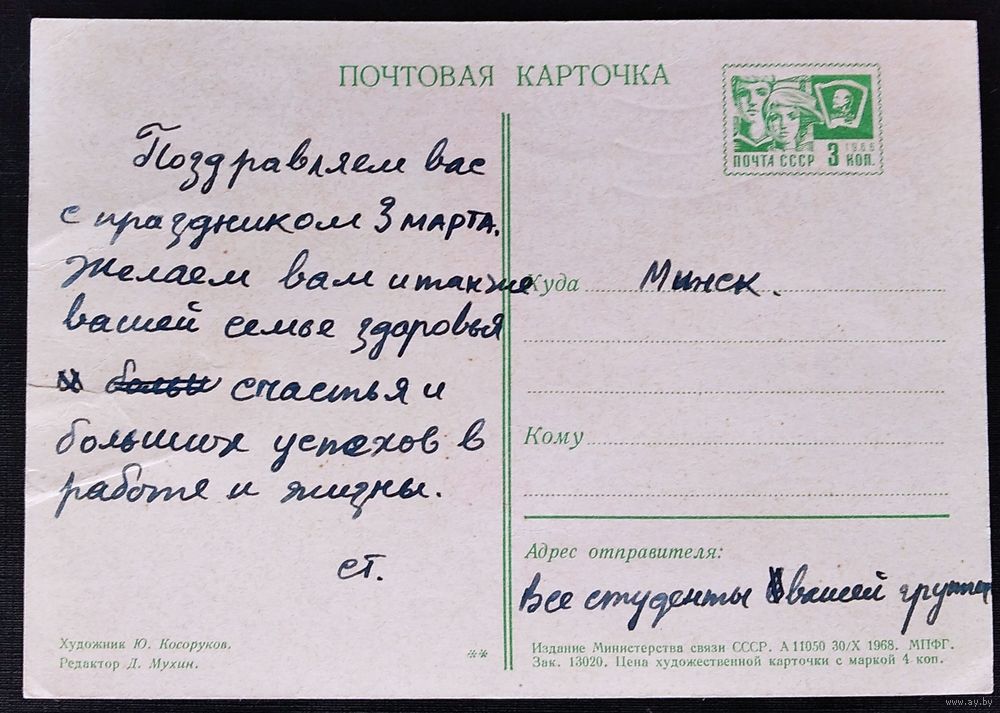 ПОЧТОВАЯ КАРТОЧКА
ПОЧТА СССР 3 КОП.
1966
Поздравляем вас
с праздником 3 МАРТА.
Желаем вам и также
вашей семье здоровья
и больш счастья и
больших успехов в
работе и жизны.
ст.
Куда Минск.
Кому
Адрес отправителя:
Все студенты вашей группы
Художник Ю. Косоруков.
Редактор Д. Мухин.
**
Издание Министерства связи СССР. А 11050 30/X 1968. МПФГ.
Зак. 13020. Цена художественной карточки с маркой 4 коп.
www.ay.by